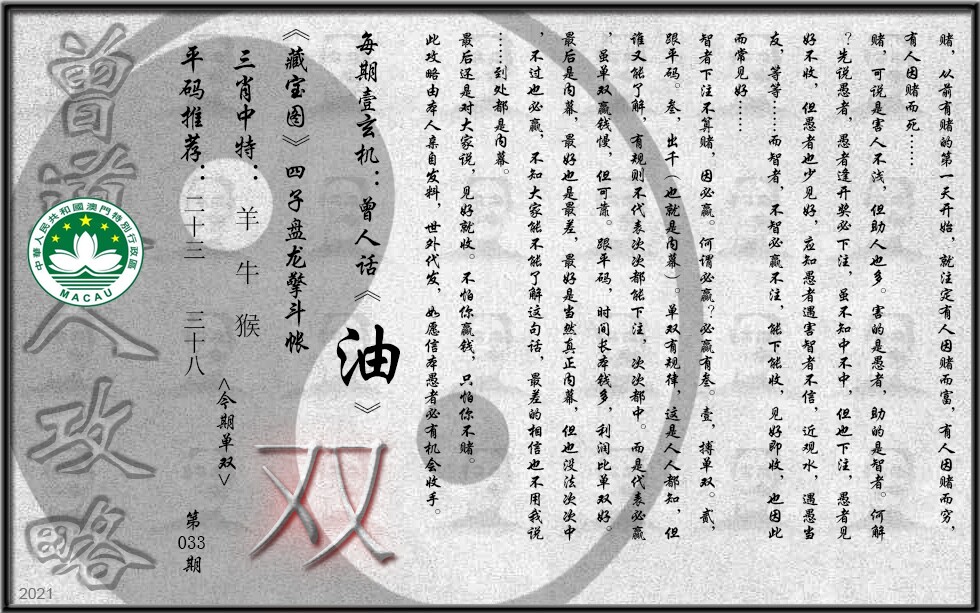 赌，从前有赌的第一天开始，就注定有人因赌而富，有人因赌而穷，
有人因赌而死……
赌，可说是害人不浅，但助人也多。害的是愚者，助的是智者。何解
？先说愚者，愚者逢开奖必下注，虽不知中不中，但也下注，愚者见
好不收，但愚者也少见好，应知愚者遇害智者不信，近观水，遇愚当
友，等等……而智者，不智必赢不注，能下能收，见好即收，也因此
而常见好……
智者下注不算赌，因必赢。何谓必赢？必赢有叁。壹，搏单双。贰，
跟平码。叁，出千（也就是内幕）。单双有规律，这是人人都知，但
谁又能了解，有规则不代表次次都能下注，次次都中。而是代表必赢
，虽单双赢钱慢，但可靠。跟平码，时间长本钱多，利润比单双好。
最后是内幕，最好也是最差，最好是当然真正内幕，但也没法次次中
，不过也必赢，不知大家能不能了解这句话，最差的相信也不用我说
……到处都是内幕。
最后还是对大家说，见好就收。不怕你赢钱，只怕你不赌。
此攻略由本人亲自发料，世外代发，如愿信本愚者必有机会收手。
每期壹玄机：曾人话《油》
《藏宝图》四子盘龙擎斗帐
三肖中特：羊 牛 猴
<今期单双>
双
平码推荐：二十三 三十八
第033期
曾道人攻略
中華人民共和國澳門特別行政區
MACAU
2021